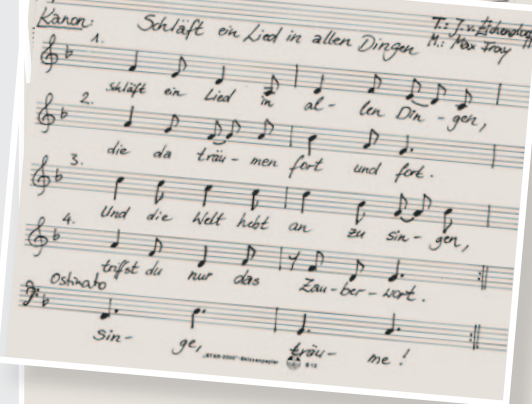 Kanon: Schläft ein Lied in allen Dingen
T.: J. v. Eichendorff
M.: Max Frey
1.
Schläft ein Lied in al- len Din- gen,
2.
die da träu- men fort und fort.
3.
Und die Welt hebt an zu sin- gen,
4.
triffst du nur das Zau- ber- wort.
Ostinato
sin- ge, träu- me!